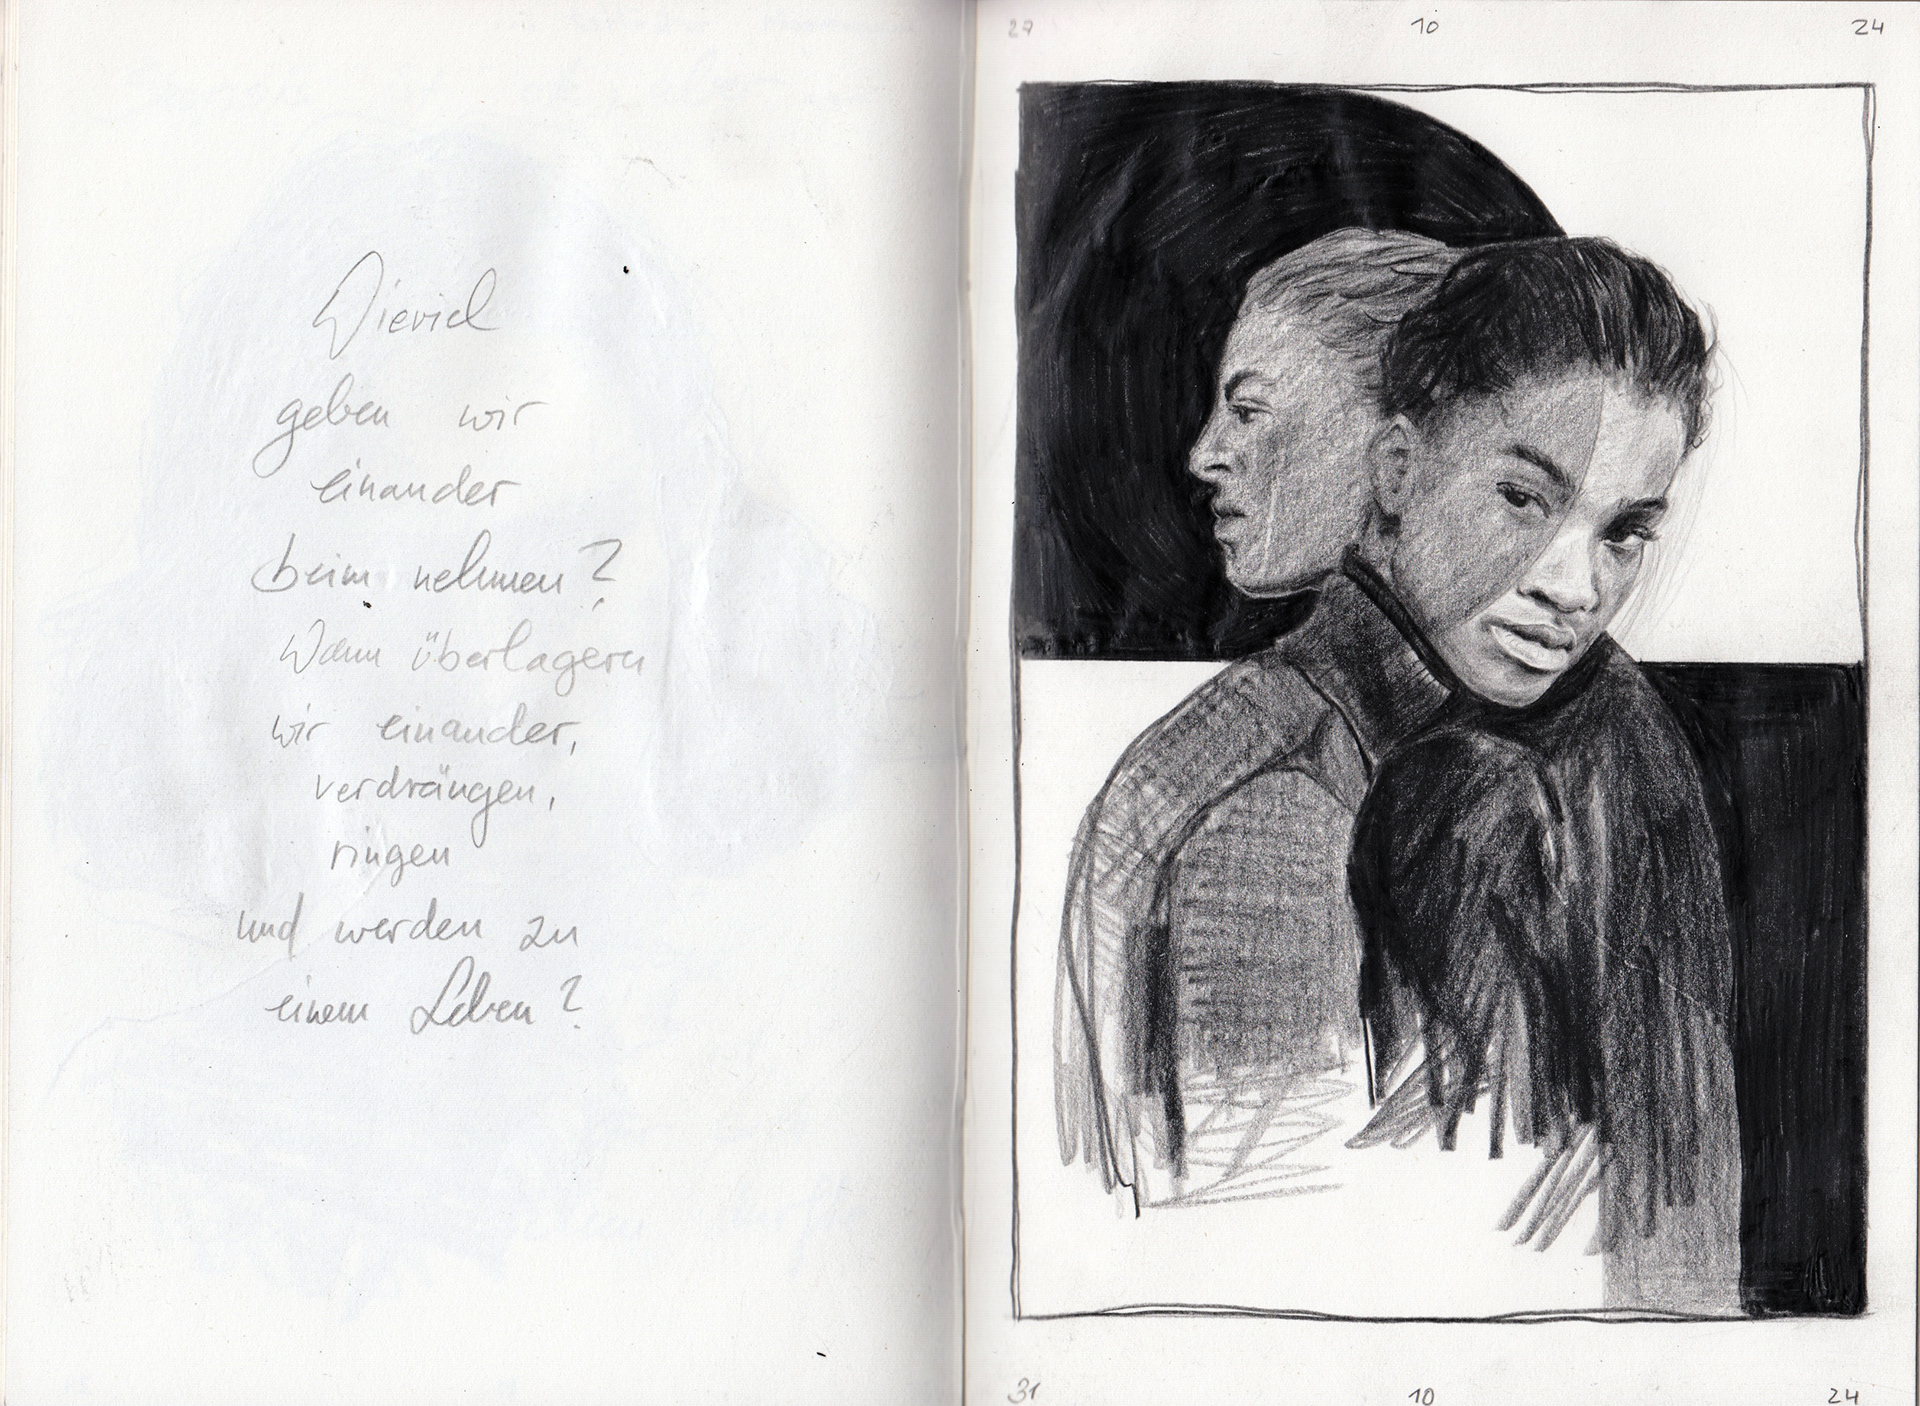 Wieviel
geben wir
einander
beim nehmen?
Wann überlagern
wir einander,
verdrängen,
ringen
und werden zu
einem Leben?
27 10 24
31 10 24